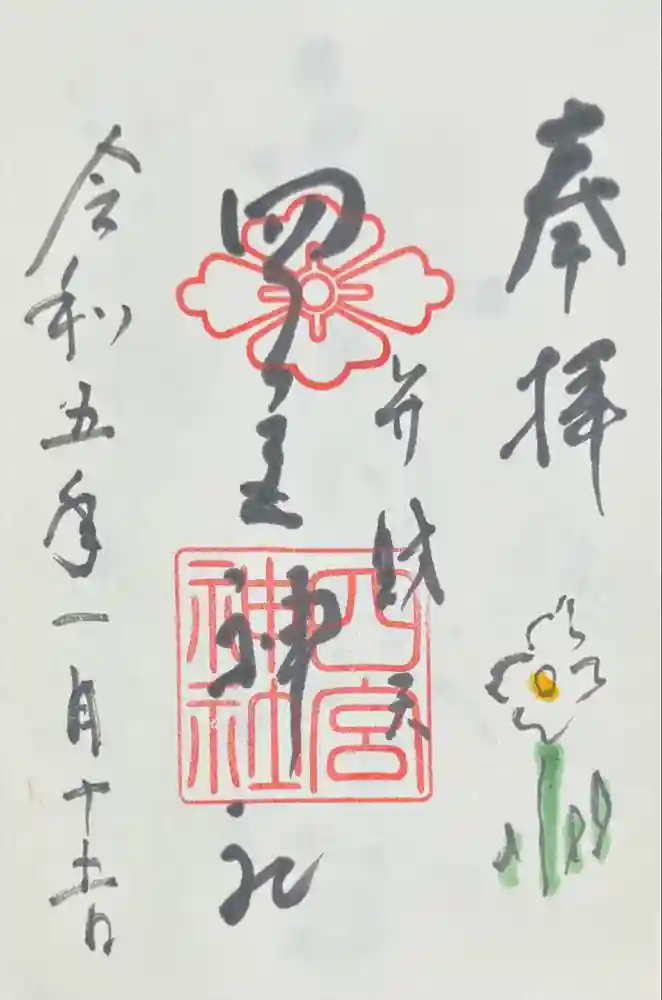 奉拝
弁財天
四宮神社
四宮神社
令和五年一月十日